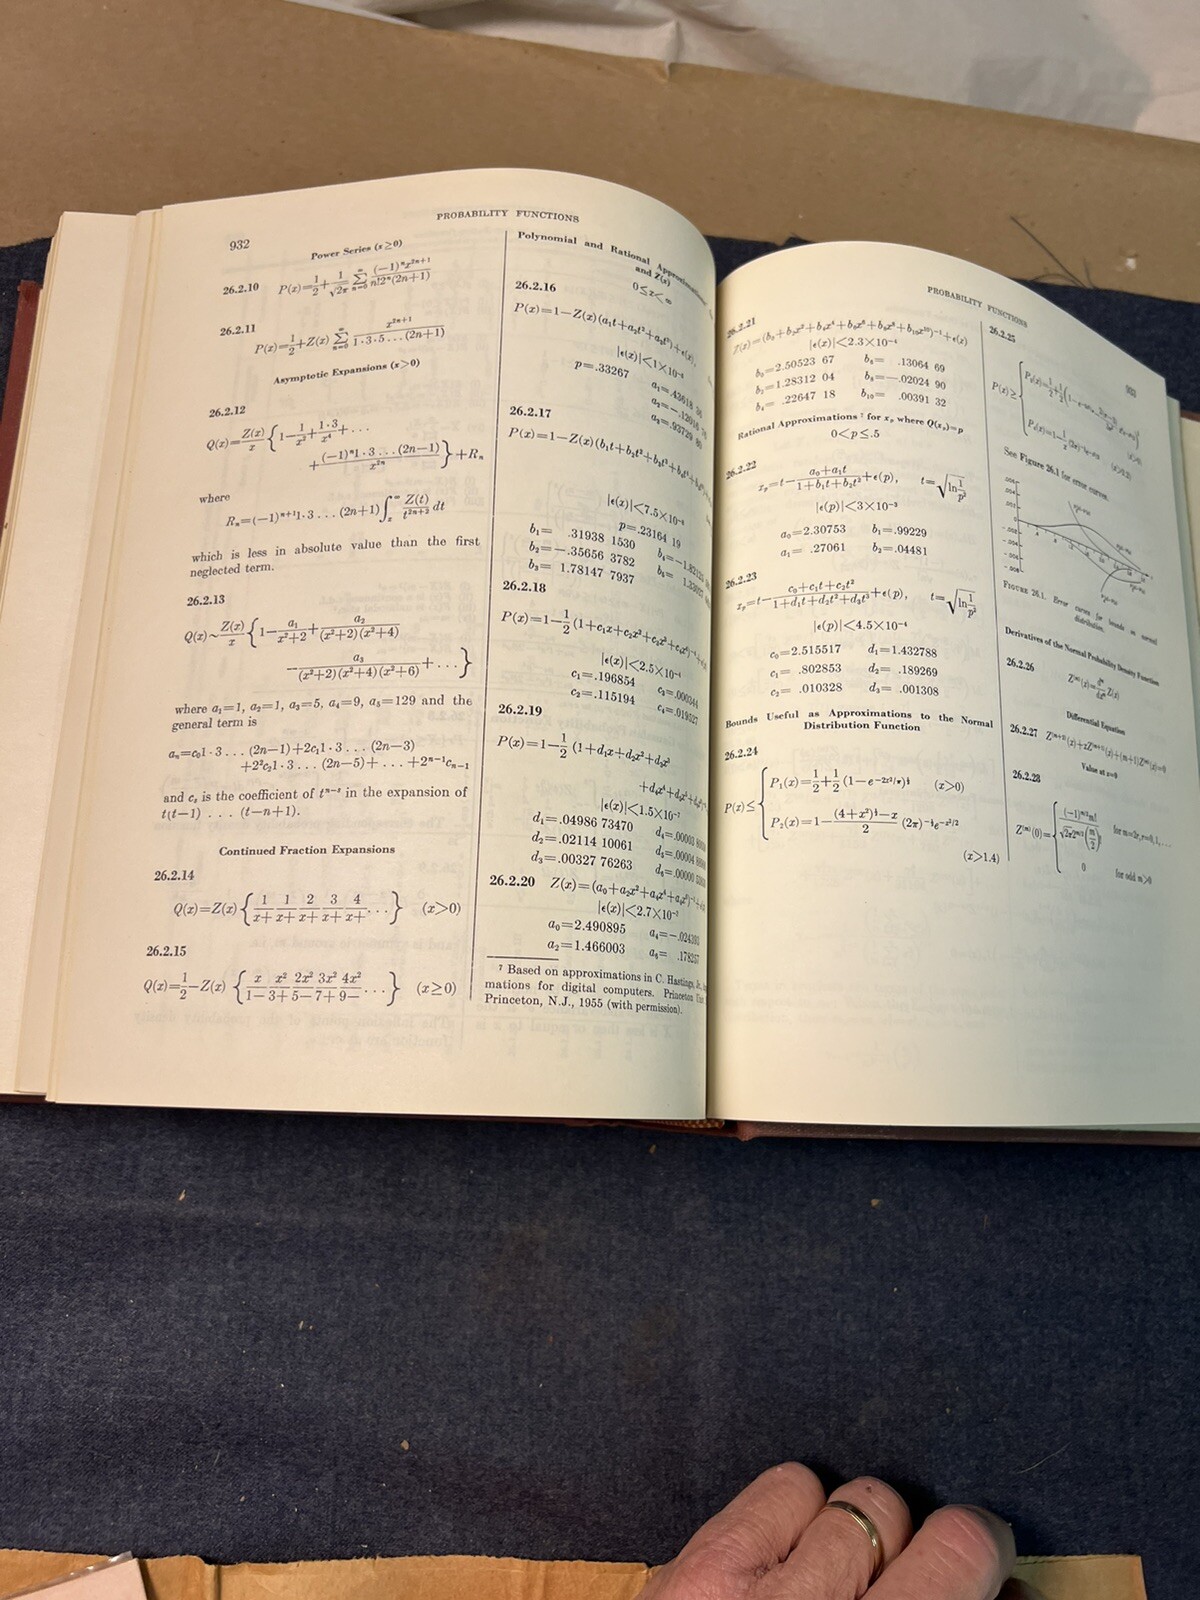 PROBABILITY FUNCTIONS
932
Power Series (x≥0)
26.2.10 P(x)=1/2+1/√2π ∑n=0∞ (-1)ⁿx²ⁿ⁺¹/n!2ⁿ(2n+1)
26.2.11
P(x)=1/2+Z(x) ∑n=0∞ x²ⁿ⁺¹/1·3·5...(2n+1)
Asymptotic Expansions (x>0)
26.2.12
Q(x)=Z(x)/x {1-1/x²+1·3/x⁴+...
+(-1)ⁿ1·3...(2n-1)/x²ⁿ}+Rₙ
where
Rₙ=(-1)ⁿ⁺¹1·3...(2n+1)∫ₓ∞ Z(t)/t²ⁿ⁺² dt
which is less in absolute value than the first
neglected term.
26.2.13
Q(x)~Z(x)/x {1-a₁/x²+2+a₂/(x²+2)(x²+4)
-a₃/(x²+2)(x²+4)(x²+6)+...}
where a₁=1, a₂=1, a₃=5, a₄=9, a₅=129 and the
general term is
aₙ=c₀1·3...(2n-1)+2c₁1·3...(2n-3)
+2²c₂1·3...(2n-5)+...+2ⁿ⁻¹cₙ₋₁
and cₛ is the coefficient of tⁿ⁻ˢ in the expansion of
t(t-1)...(t-n+1).
Continued Fraction Expansions
26.2.14
Q(x)=Z(x){1/x+ 1/x+ 2/x+ 3/x+ 4/x+ ...} (x>0)
26.2.15
Q(x)=1/2-Z(x) {x/1- x²/3+ 2x²/5- 3x²/7+ 4x²/9- ...} (x≥0)
Polynomial and Rational Approximations
and Z(x)
26.2.16 0≤x<∞
P(x)=1-Z(x)(a₁t+a₂t²+a₃t³)+ε(x),
|ε(x)|<1×10⁻⁵
p=.33267
26.2.17
P(x)=1-Z(x)(b₁t+b₂t²+b₃t³+b₄t⁴+b₅t⁵)
|ε(x)|<7.5×10⁻⁸
p=.23164 19
b₁= .31938 1530
b₂=-.35656 3782
b₃= 1.78147 7937
26.2.18
P(x)=1-1/2(1+c₁x+c₂x²+c₃x³+c₄x⁴)⁻⁴
|ε(x)|<2.5×10⁻⁴
c₁=.196854 c₃=.000344
c₂=.115194 c₄=.019527
26.2.19
P(x)=1-1/2 (1+d₁x+d₂x²+d₃x³
+d₄x⁴+d₅x⁵+d₆x⁶)
|ε(x)|<1.5×10⁻⁷
d₁=.04986 73470
d₂=.02114 10061
d₃=.00327 76263
26.2.20 Z(x)=(a₀+a₂x²+a₄x⁴+a₆x⁶)⁻¹
|ε(x)|<2.7×10⁻³
a₀=2.490895 a₄=-.024393
a₂=1.466003 a₆= .178257
⁷ Based on approximations in C. Hastings, Jr.,
mations for digital computers. Princeton
Princeton, N.J., 1955 (with permission).
PROBABILITY FUNCTIONS
933
26.2.21
Z(x)=(b₀+b₂x²+b₄x⁴+b₆x⁶+b₈x⁸+b₁₀x¹⁰)⁻¹+ε(x)
|ε(x)|<2.3×10⁻⁴
b₀=2.50523 67 b₆= .13064 69
b₂=1.28312 04 b₈=-.02024 90
b₄= .22647 18 b₁₀= .00391 32
Rational Approximations ⁷ for xₚ where Q(xₚ)=p
0<p≤.5
26.2.22
xₚ=t-a₀+a₁t/1+b₁t+b₂t²+ε(p), t=√ln 1/p²
|ε(p)|<3×10⁻³
a₀=2.30753 b₁=.99229
a₁= .27061 b₂=.04481
26.2.23
xₚ=t-c₀+c₁t+c₂t²/1+d₁t+d₂t²+d₃t³+ε(p), t=√ln 1/p²
|ε(p)|<4.5×10⁻⁴
c₀=2.515517 d₁=1.432788
c₁= .802853 d₂= .189269
c₂= .010328 d₃= .001308
Bounds Useful as Approximations to the Normal
Distribution Function
26.2.24
P(x)≤ {P₁(x)=1/2+1/2 (1-e^(-2x²/π))^½ (x>0)
P₂(x)=1-(4+x²)^½-x/2 (2π)^(-½)e^(-x²/2)
(x>1.4)
26.2.25
P(x)≥
See Figure 26.1 for error curves.
FIGURE 26.1. Error curves for bounds on normal
distribution.
Derivatives of the Normal Probability Density Function
26.2.26
Z⁽ᵐ⁾(x)=dᵐ/dxᵐ Z(x)
Differential Equation
26.2.27 Z⁽ᵐ⁺²⁾(x)+xZ⁽ᵐ⁺¹⁾(x)+(m+1)Z⁽ᵐ⁾(x)=0
Value at x=0
26.2.28
Z⁽ᵐ⁾(0)= {(-1)^(m/2)m!/√2π2^(m/2)(m/2)! for m=2r, r=0, 1, ...
0 for odd m>0